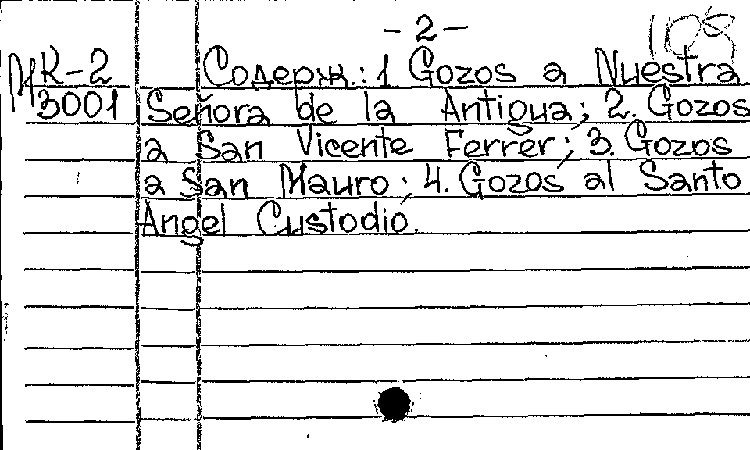 - 2 -
108
МК-2
3001
Содерж.: 1. Gozos a Nuestra
Señora de la Antigua; 2. Gozos
a San Vicente Ferrer; 3. Gozos
a San Mauro; 4. Gozos al Santo
Angel Custodio.